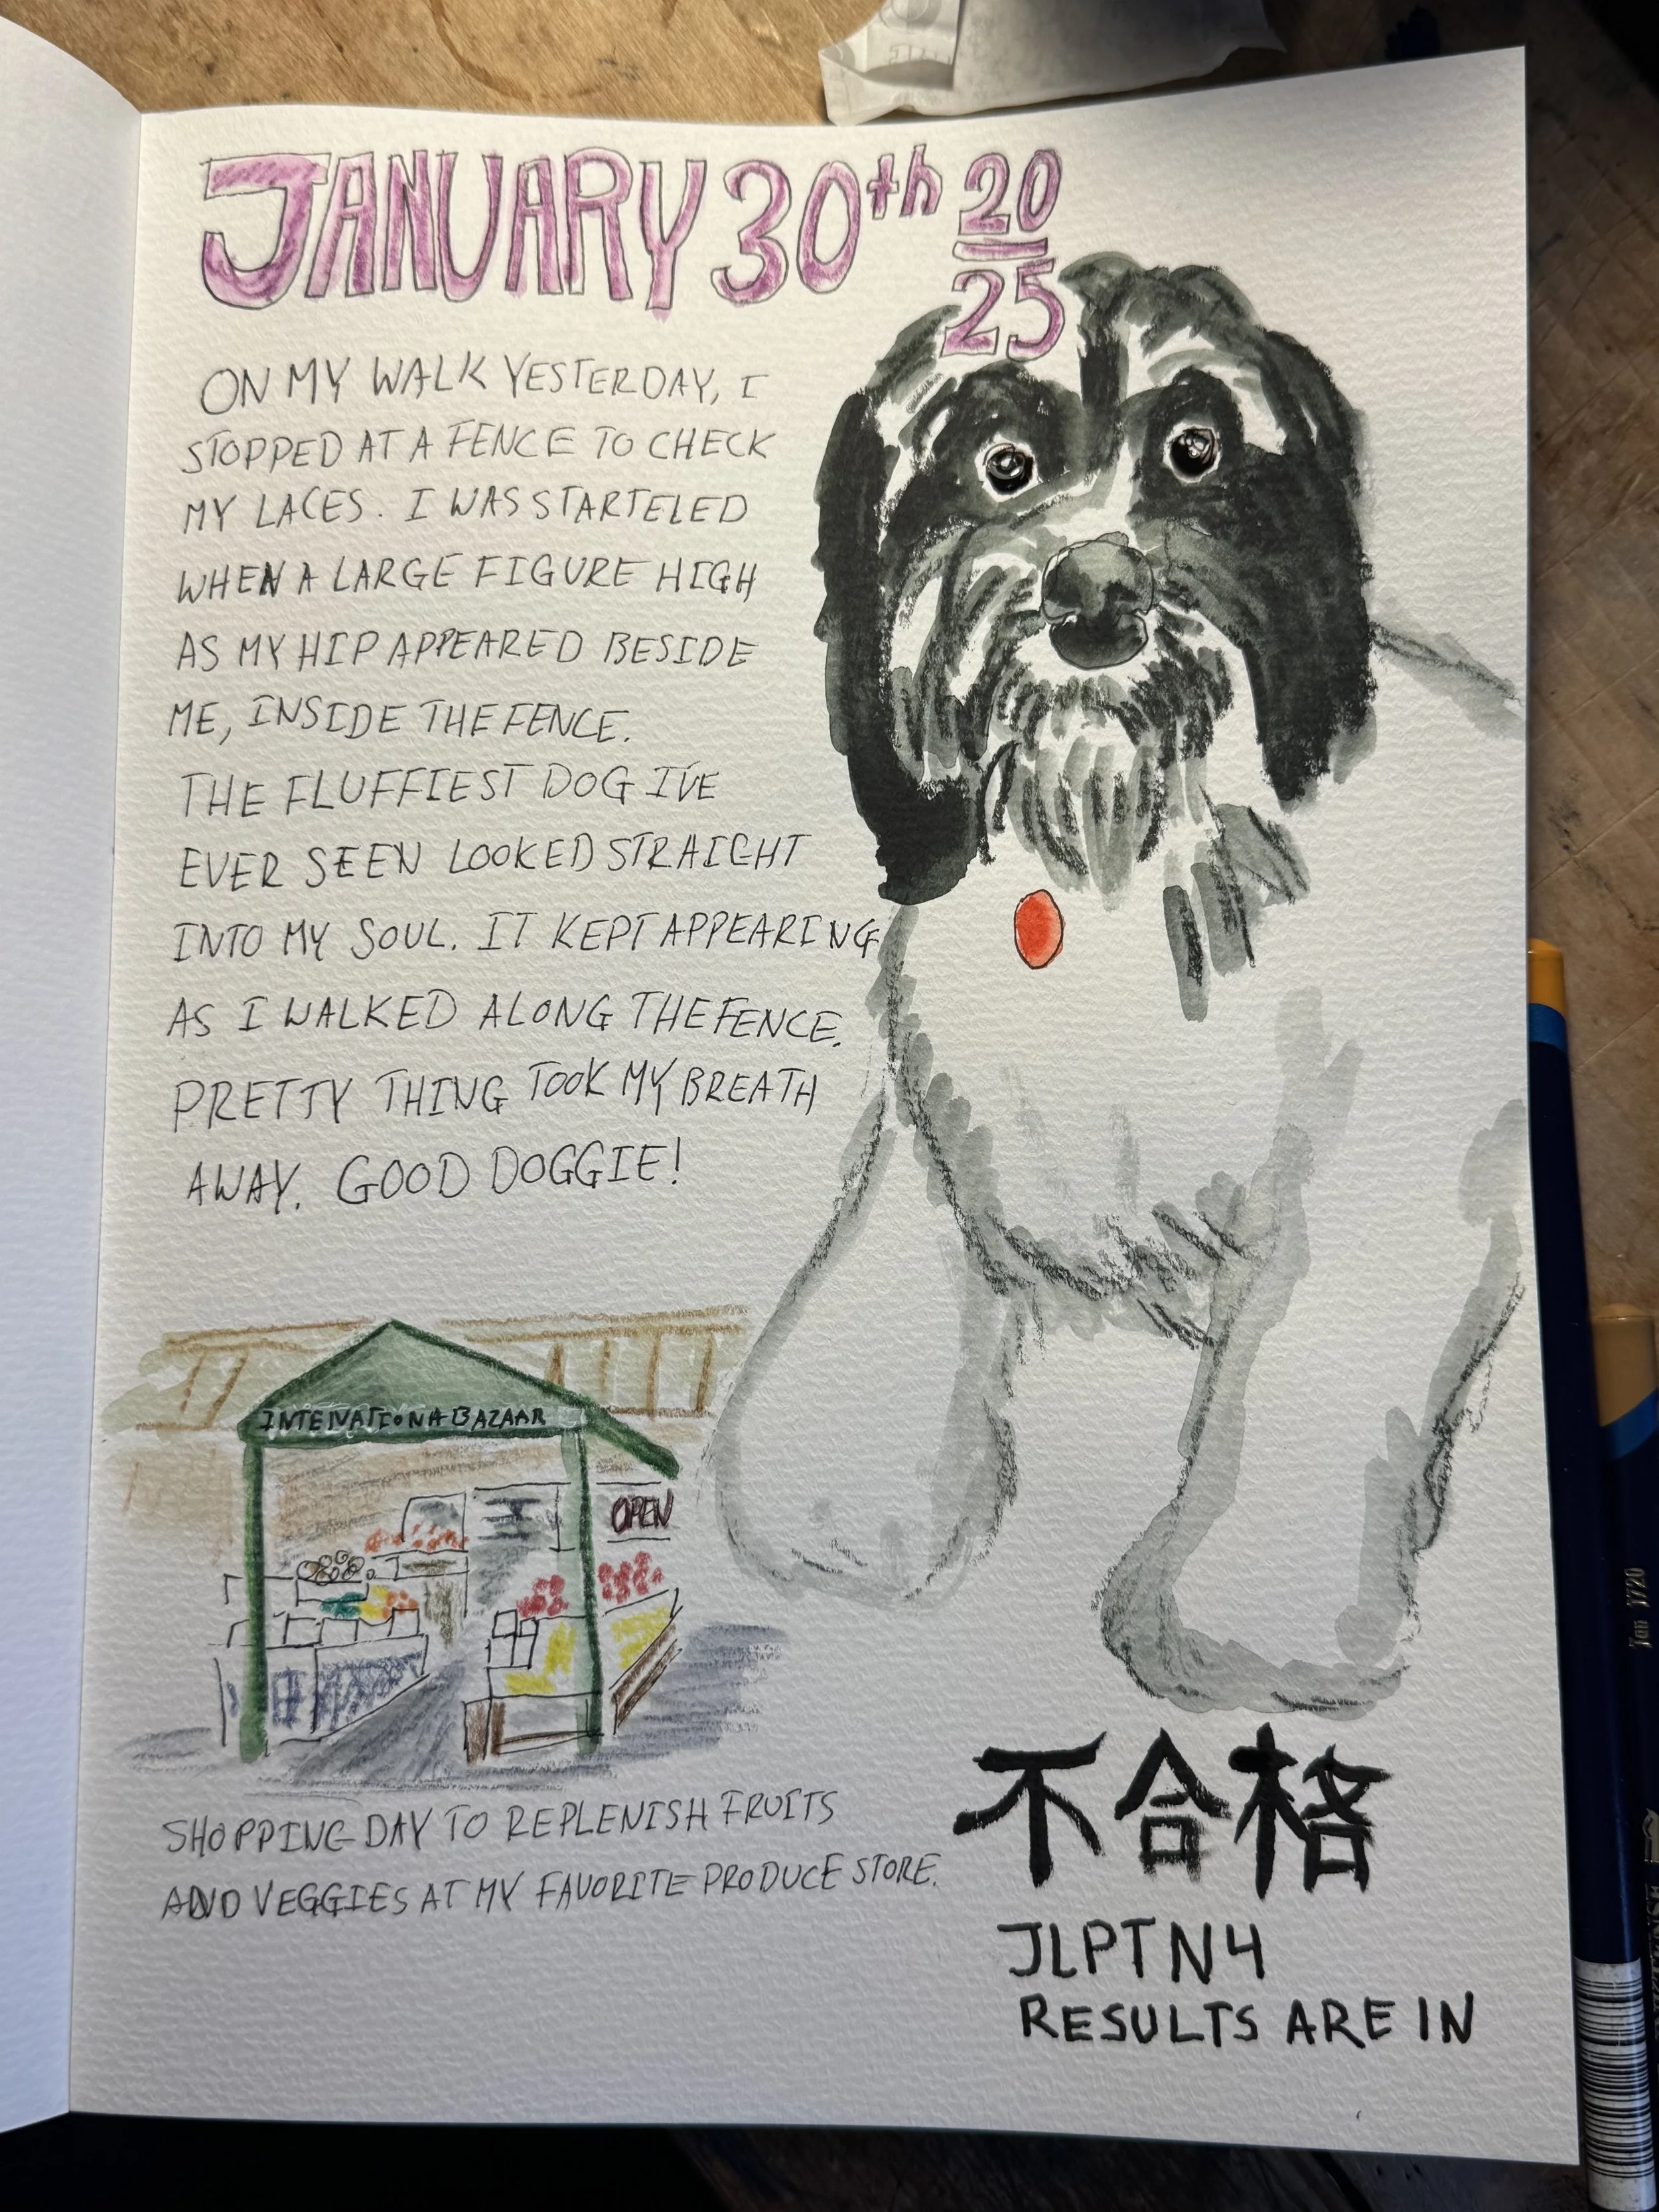 JANUARY 30th 20
25
ON MY WALK YESTERDAY, I
STOPPED AT A FENCE TO CHECK
MY LACES. I WAS STARTELED
WHEN A LARGE FIGURE HIGH
AS MY HIP APPEARED BESIDE
ME, INSIDE THE FENCE.
THE FLUFFIEST DOG I'VE
EVER SEEN LOOKED STRAIGHT
INTO MY SOUL. IT KEPT APPEARING
AS I WALKED ALONG THE FENCE.
PRETTY THING TOOK MY BREATH
AWAY. GOOD DOGGIE!
BAZAAR
OPEN
SHOPPING DAY TO REPLENISH FRUITS
AND VEGGIES AT MY FAVORITE PRODUCE STORE.
不合格
JLPT N4
RESULTS ARE IN
Tan 1720